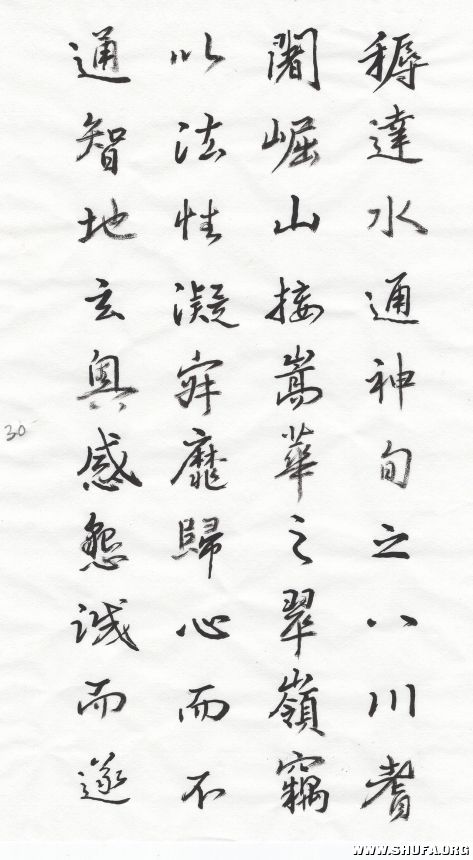 耨達水通神甸之八川耆
闍崛山接嵩華之翠嶺竊
以法性凝寂靡歸心而不
通智地玄奧感懇誠而遂
30
WWW.SHUFA.ORG